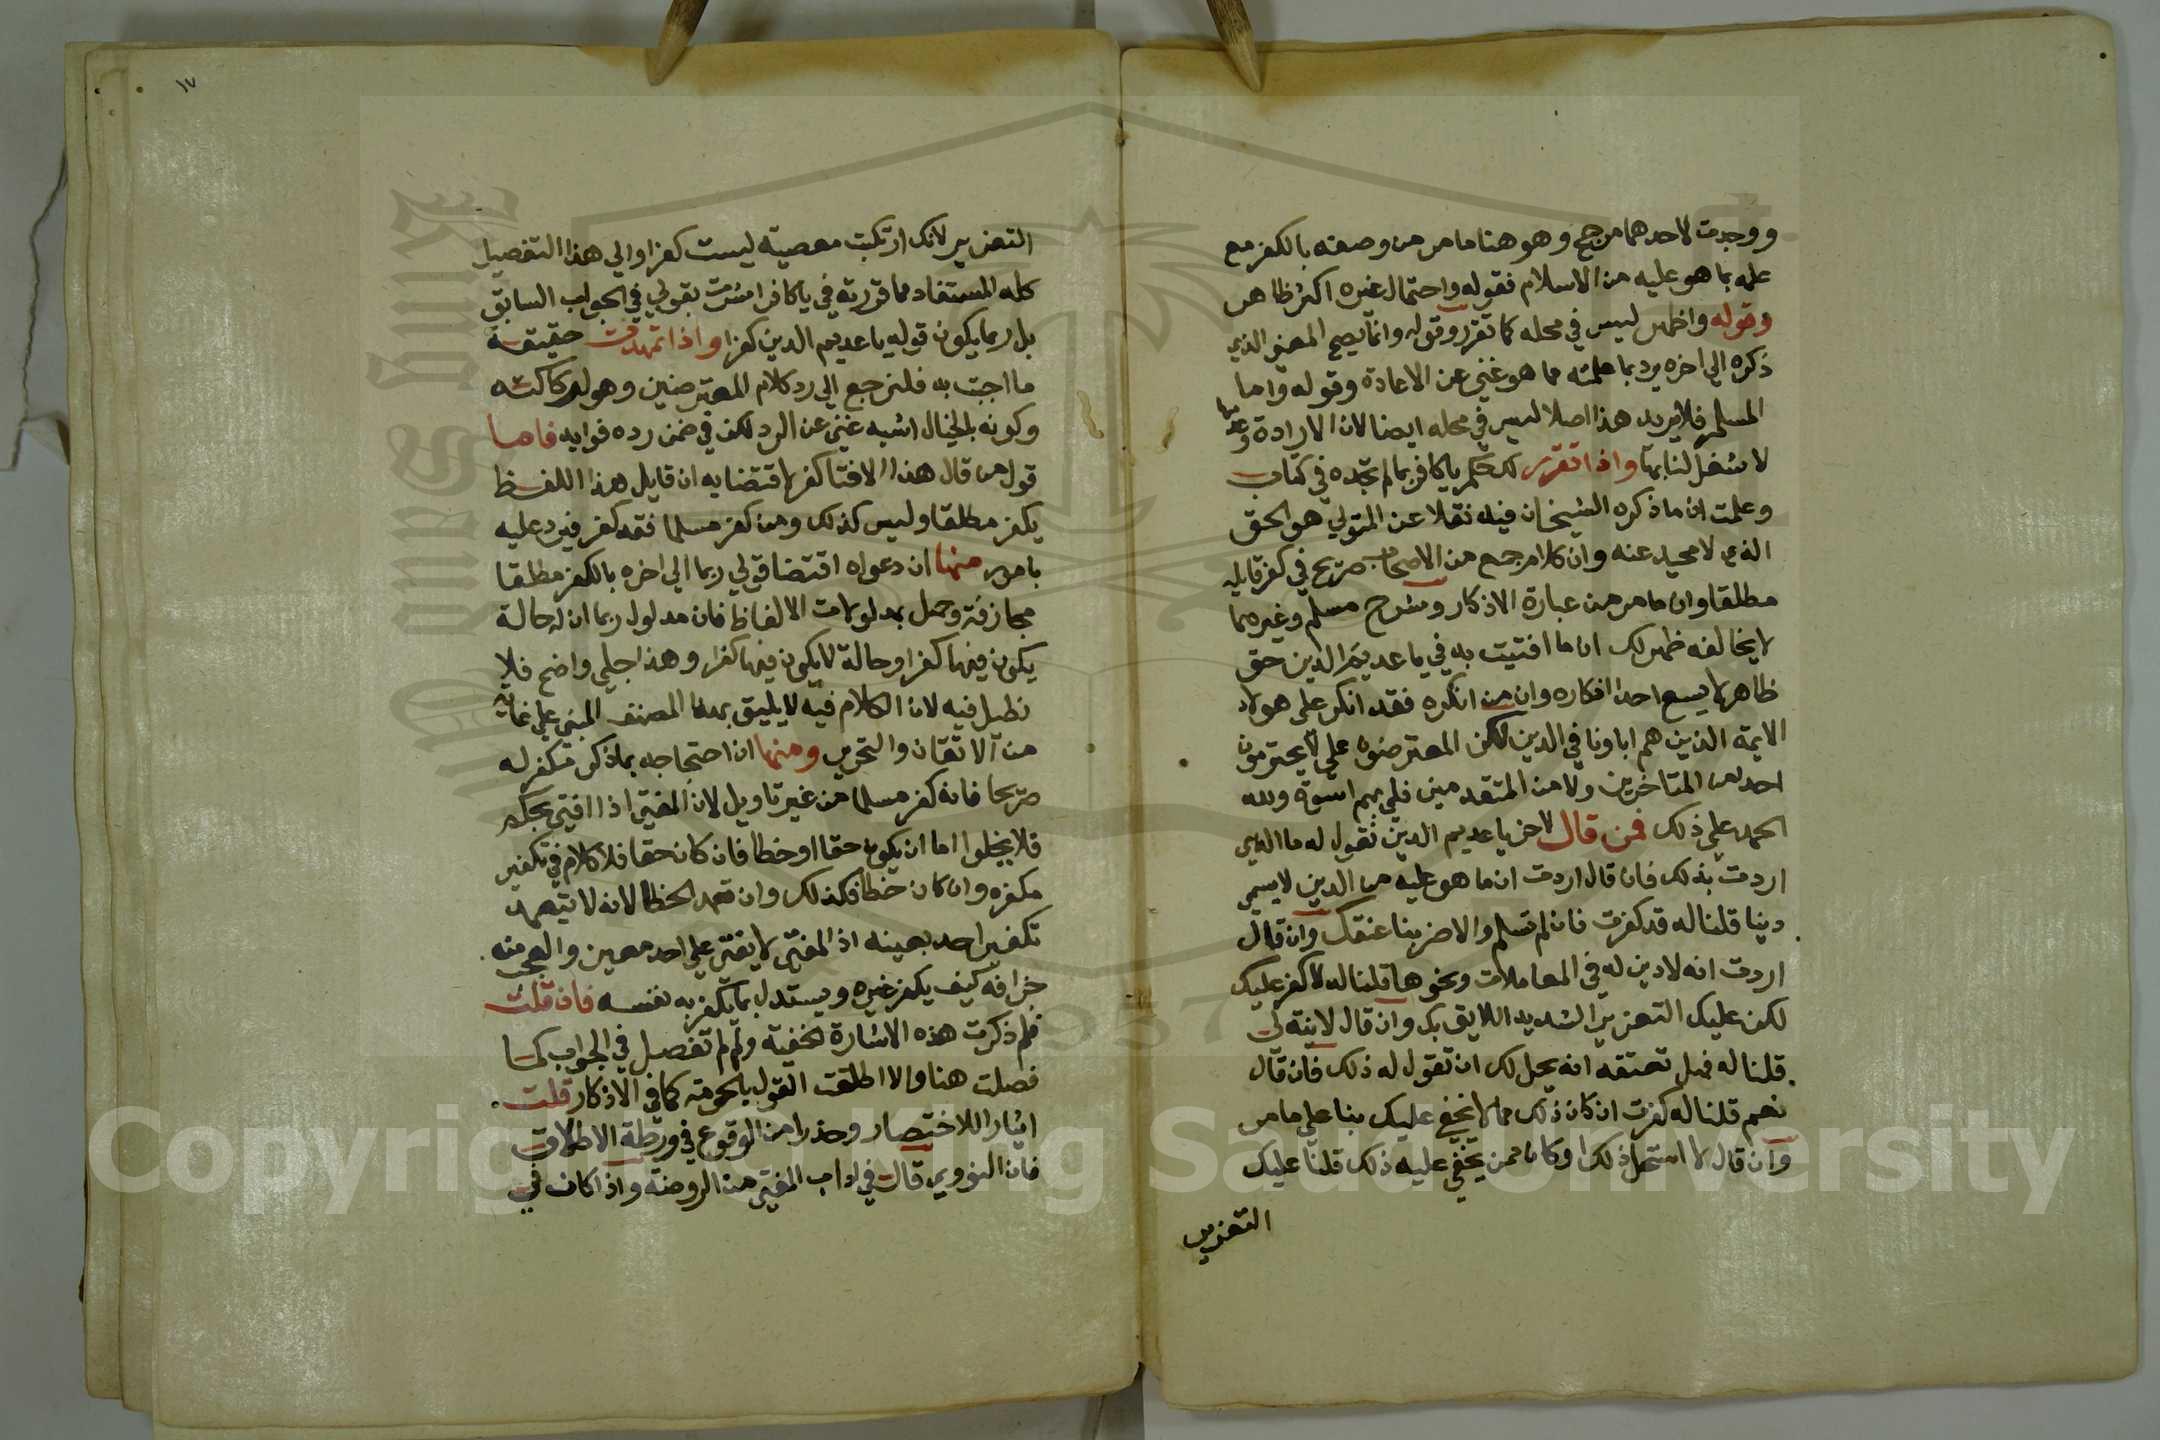 ووجدت لاحدهما مرجح وهو هنا ما مر من وصفه بالكفر مع
علمه بما هو عليه من الاسلام فقوله واحتمال غيره اكثر ظاهر
وقوله واظهر ليس في محله كما تقرر وقوله وانما يصح المعنى الذي
ذكره الى اخره يرد بما علمته مما هو غني عن الاعادة وقوله واما
المسلم فلا يريد هذا اصلا ليس في محله ايضا لان الارادة وعدمها
لا شغل لنا بها واذا تقرر لك حكم يا كافر بما لم تجده في كتاب
وعلمت ان ما ذكره الشيخان فيه نقلا عن المتولي هو الحق
الذي لا محيد عنه وان كلام جمع من الاصحاب صريح في كفر قايله
مطلقا وان ما مر من عبارة الاذكار وشرح مسلم وغيرهما
لا يخالفه ظهر لك ان ما افتيت به في يا عديم الدين حق
ظاهر لا يسع احدا انكاره وان من انكره فقد انكر على هولاء
الايمة الذين هم اباونا في الدين لكن المعترضون علي لا يحترمون
احد من المتاخرين ولا من المتقدمين فلي بهم اسوة ولله
الحمد على ذلك فمن قال لاخر يا عديم الدين نقول له ما الذي
اردت بذلك فان قال اردت ان ما هو عليه من الدين لا يسمى
دينا قلنا له قد كفرت فان لم تسلم والا ضربنا عنقك وان قال
اردت انه لا دين له في المعاملات ونحوها قلنا له لا كفر عليك
لكن عليك التعزير الشديد اللايق بك وان قال لا نية لي
قلنا له فهل تعتقد انه يحل لك ان تقول له ذلك فان قال
نعم قلنا له كفرت ان كان ذلك مما لا يخفى عليك بنا على ما مر
وان قال لا استحل ذلك او كان ممن يخفى عليه ذلك قلنا عليك
التعزير
١٧
التعزير لانك ارتكبت معصية ليست كفرا والى هذا التفصيل
كله المستفاد مما قررته في يا كافر اشرت بقولي في الجواب السابق
بل ربما يكون قوله يا عديم الدين كفرا واذا تمهدت حقيقة
ما اجبت به فلنرجع الى رد كلام المعترضين وهو لركاكته
وكونه بالخيال اشبه غني عن الرد لكن في ضمن رده فوايد فاما
قول من قال هذا الافتا كفر لاقتضايه ان قايل هذا اللفظ
يكفر مطلقا وليس كذلك ومن كفر مسلما فقد كفر فيرد عليه
بامور منها ان دعواه اقتضا قولي ربما الى اخره بالكفر مطلقا
مجازفة وجهل بمدلولات الالفاظ فان مدلول ربما ان له حالة
يكون فيها كفرا وحالة لا يكون فيها كفرا وهذا جلي واضح فلا
نطيل فيه لان الكلام فيه لا يليق بهذا المصنف المبني على غاية
من الاتقان والتحرير ومنها ان احتجاجه بما ذكر مكفر له
صريحا فانه كفر مسلما من غير تاويل لان المفتي اذا افتى بحكم
فلا يخلوا اما ان يكون حقا او خطا فان كان حقا فلا كلام في تكفير
مكفره وان كان خطا فكذلك وان تعمد الخطا لانه لا يتعمد
تكفير احد بعينه اذ المفتي لا يفتي على احد معين والعجب منه
خرافة كيف يكفر غيره ويستدل بما يكفر به نفسه فان قلت
فلم ذكرت هذه الاشارة الخفية ولم لم تفصل في الجواب كما
فصلت هنا والا اطلقت القول بالحرمة كما في الاذكار قلت
ايثارا للاختصار وحذرا من الوقوع في ورطة الاطلاق
فان النووي قال في اداب المفتي من الروضة واذا كان في
Copyright © King Saud University
King Saud University
1957